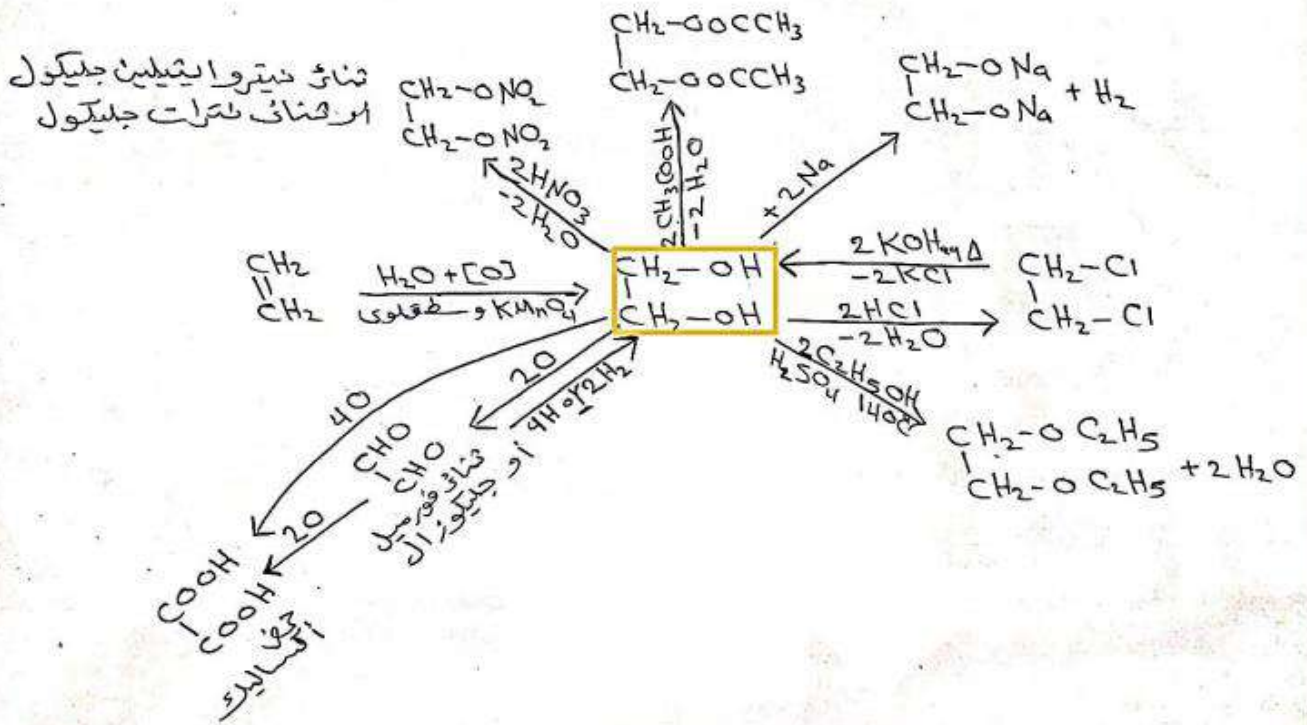 CH₂-OOCCH₃
CH₂-OOCCH₃
ثنائى نيترو ايثيلين جليكول
او ثنائى نترات جليكول
CH₂-ONO₂
CH₂-ONO₂
CH₂-ONa
CH₂-ONa + H₂
2HNO₃
-2H₂O
2CH₃COOH
-2H₂O
+2Na
CH₂
CH₂
H₂O+[O]
وسط قلوى KMnO₄
CH₂-OH
CH₂-OH
2KOHaq Δ
-2KCl
2HCl
-2H₂O
CH₂-Cl
CH₂-Cl
2C₂H₅OH
H₂SO₄ 140°C
CH₂-O C₂H₅
CH₂-O C₂H₅ + 2H₂O
4O
2O
4H or 2H₂
CHO
CHO
ثنائى فورميل
أو جليكوزال
2O
COOH
COOH
حمض
أكساليك